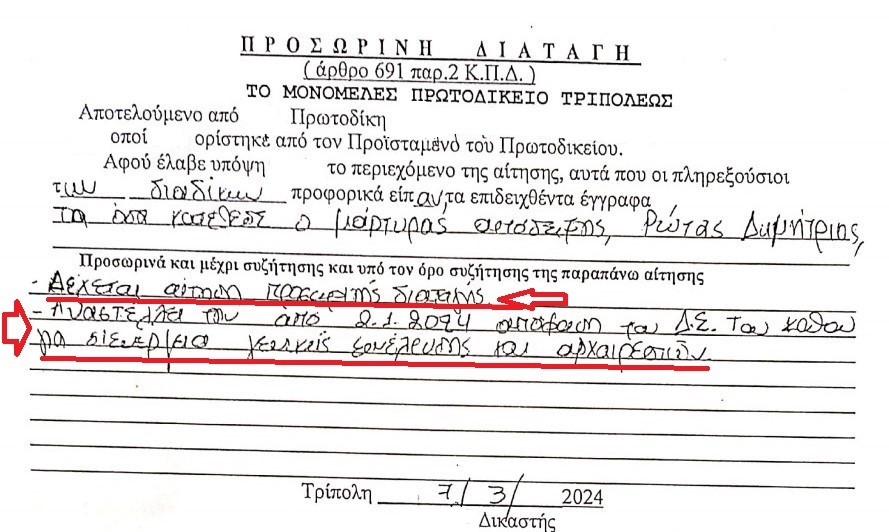 ΠΡΟΣΩΡΙΝΗ ΔΙΑΤΑΓΗ
(άρθρο 691 παρ.2 Κ.Π.Δ.)
ΤΟ ΜΟΝΟΜΕΛΕΣ ΠΡΩΤΟΔΙΚΕΙΟ ΤΡΙΠΟΛΕΩΣ
Αποτελούμενο από Πρωτοδίκη
οποί ορίστηκε από τον Προϊσταμένο του Πρωτοδικείου.
Αφού έλαβε υπόψη το περιεχόμενο της αίτησης, αυτά που οι πληρεξούσιοι
των διαδίκων προφορικά είπαν, τα επιδειχθέντα έγγραφα
τα όσα κατέθεσε ο μάρτυρας απόδειξης, Ρώτας Δημήτριος,
Προσωρινά και μέχρι συζήτησης και υπό τον όρο συζήτησης της παραπάνω αίτησης
- Δέχεται αίτηση προσωρινής διαταγής
- Αναστέλλει την από 2.1.2024 απόφαση του Δ.Σ. του καθού
για διενέργεια γενικής συνέλευσης και αρχαιρεσιών
Τρίπολη 7/3/ 2024
Δικαστής